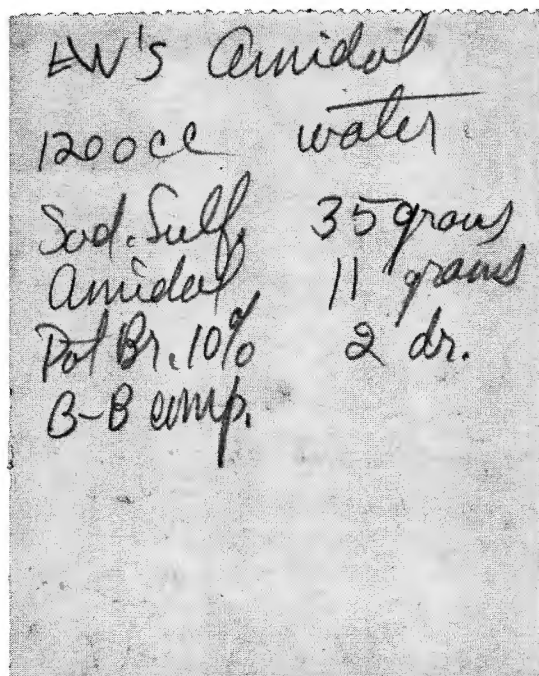 EW's Amidol
1200cc water
Sod. Sulf. 35 grams
Amidol 11 grams
Pot Br. 10% 2 dr.
B-B comp.